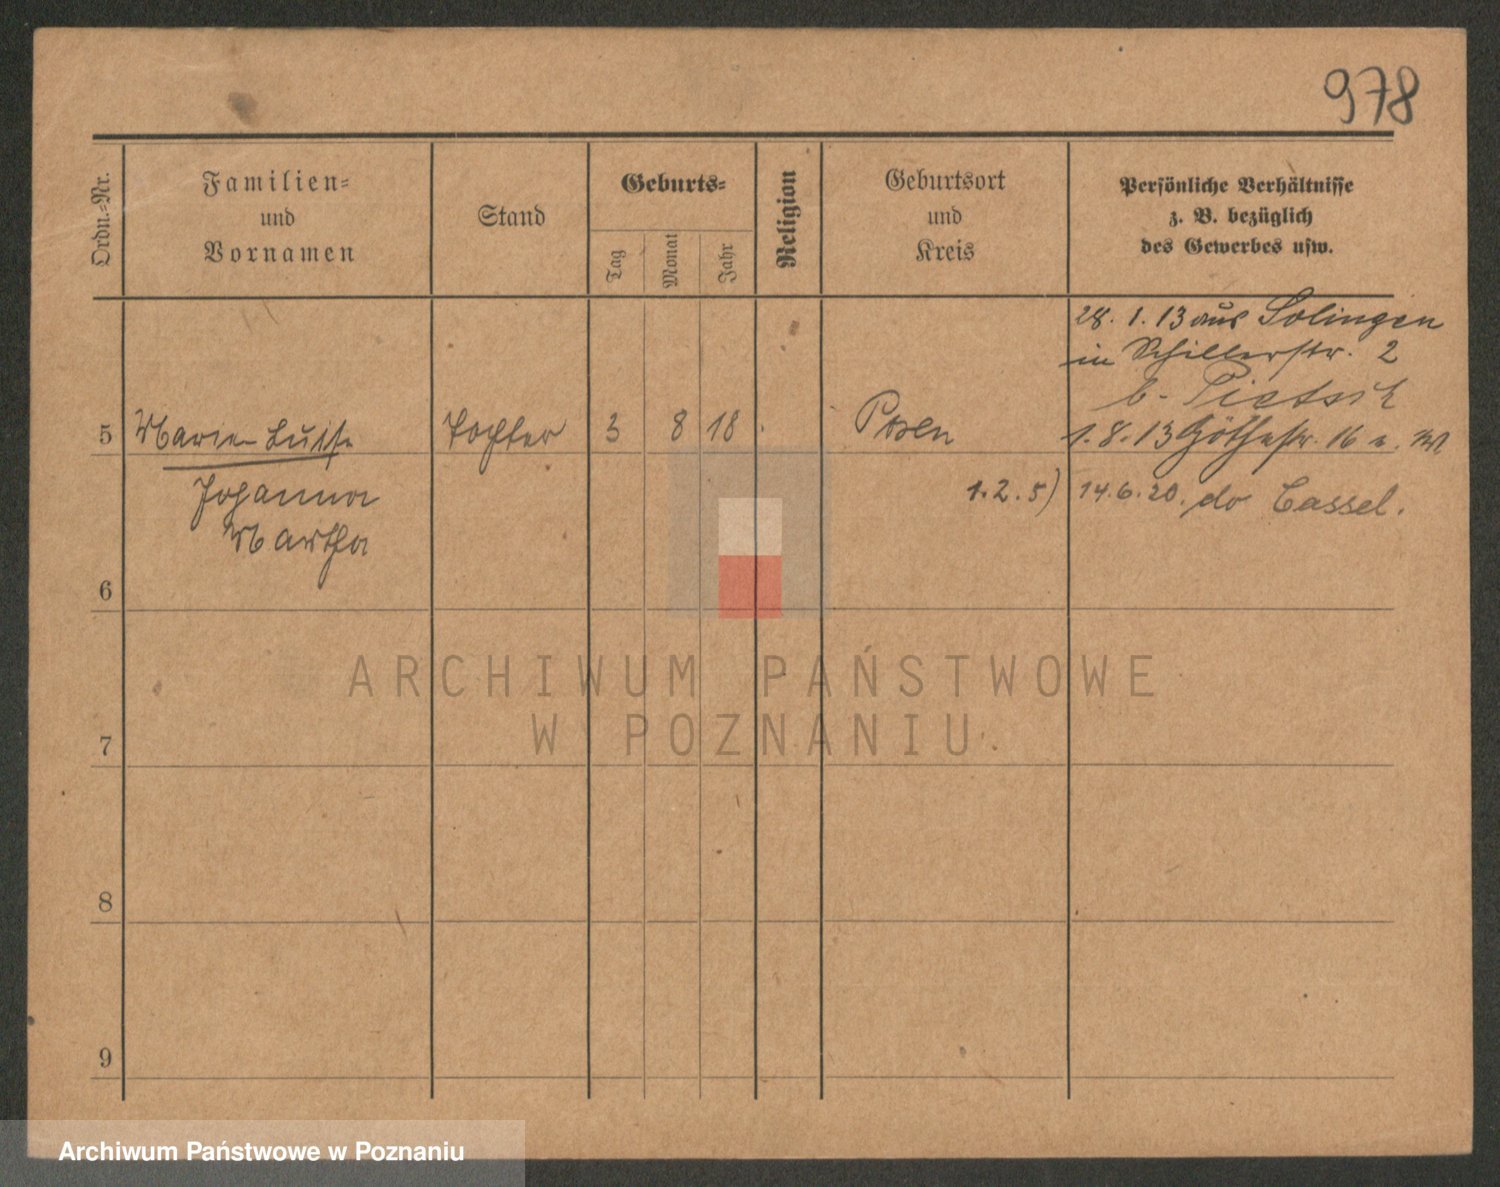 978
Ordn.-Nr.
Familien-
und
Vornamen
Stand
Geburts-
Tag
Monat
Jahr
Religion
Geburtsort
und
Kreis
Persönliche Verhältnisse
z. B. bezüglich
des Gewerbes usw.
28. 1. 13 aus Solingen
in Schillerstr. 2
b. Pietsch
5 Marie-Luise Tochter 3 8 18 Posen
1.8.13 Göthestr. 16
Johanna
1.2.5) 14.6.20. do Cassel.
Martha
6
7
8
9
ARCHIWUM PAŃSTWOWE
W POZNANIU
Archiwum Państwowe w Poznaniu